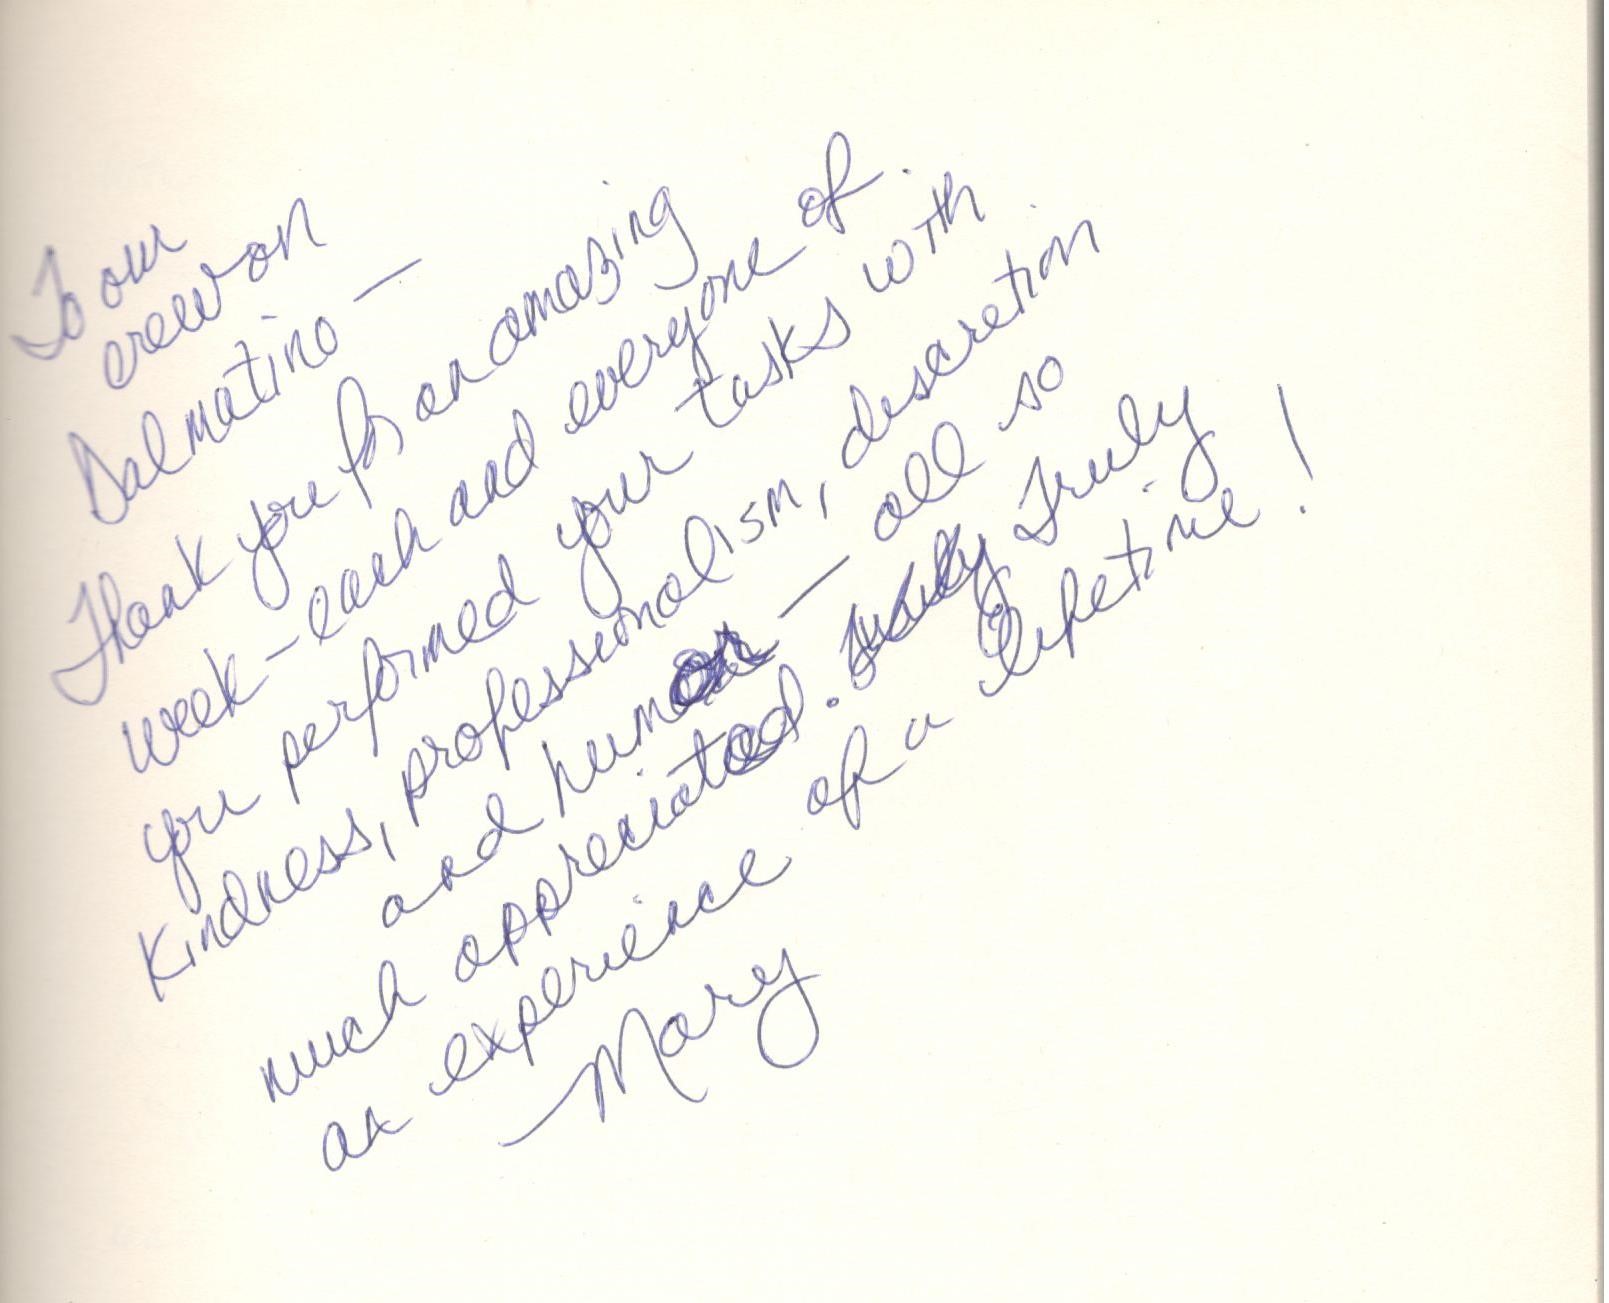 To our
crew on
Dalmatino —
Thank you for an amazing
week - each and everyone of
you performed your tasks with
kindness, professionalism, descretion
and humor — all so
much appreciated. Truly
an experience of a lifetime!
— Mary